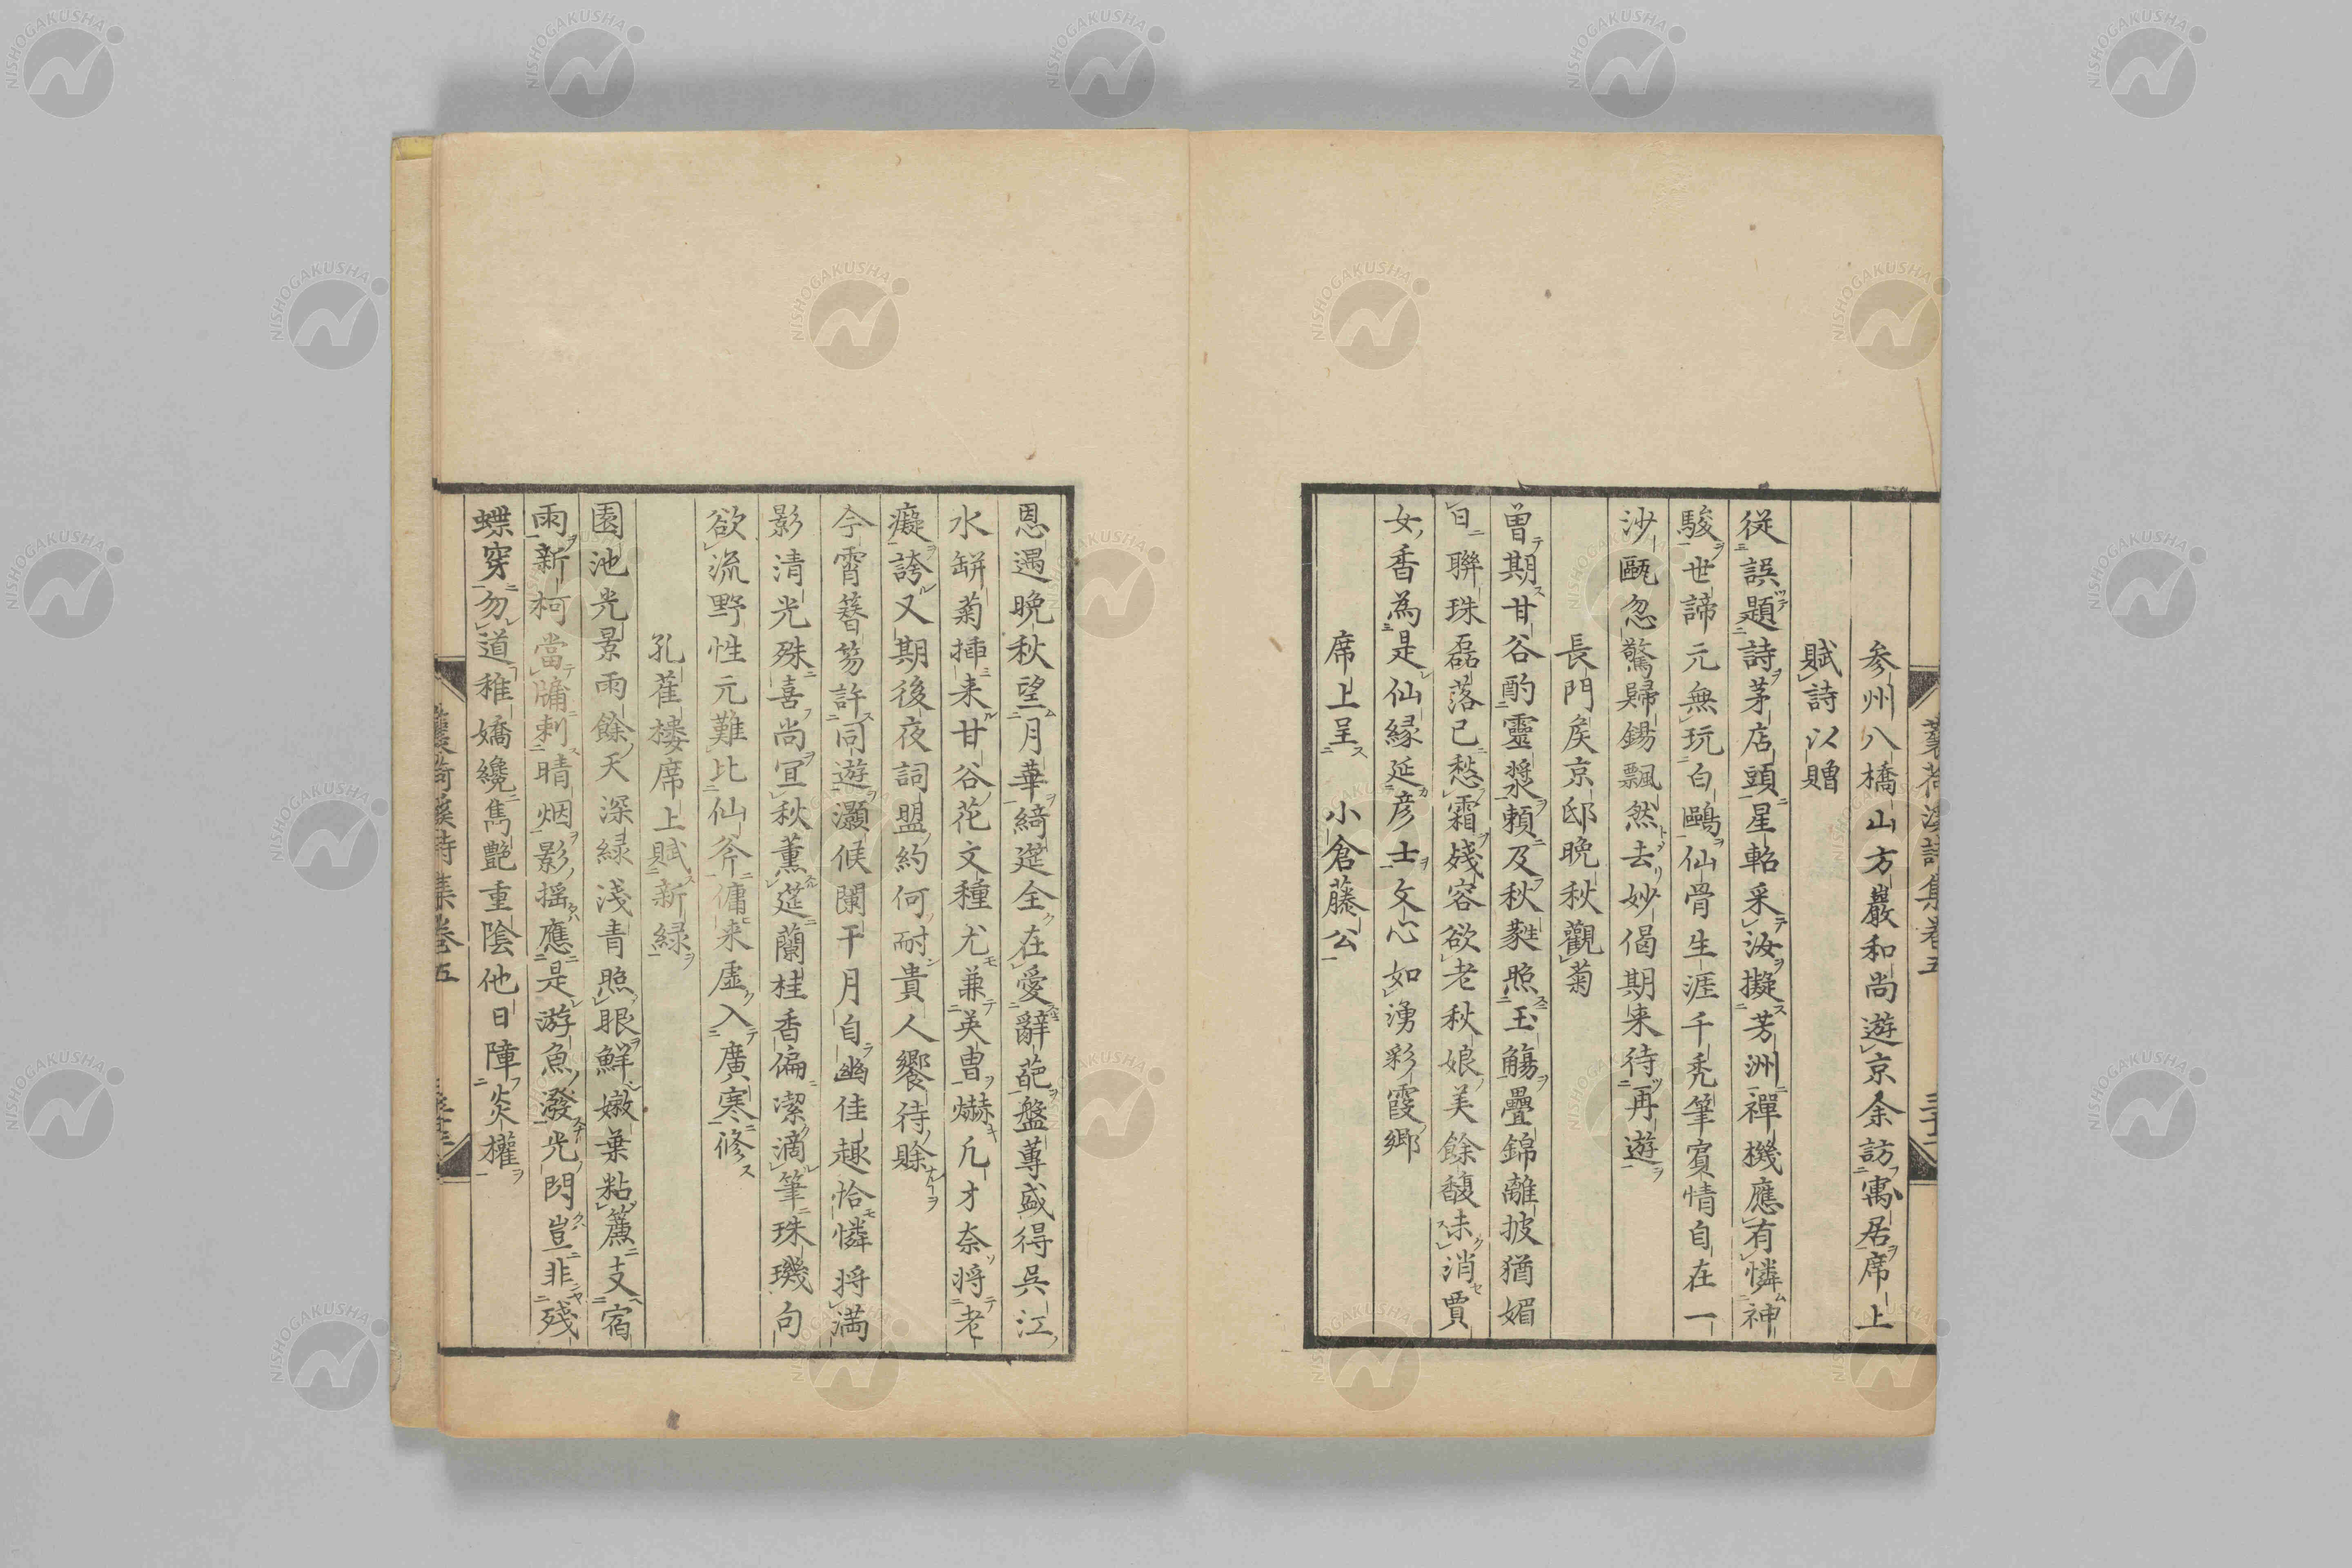 参州八橋山方巖和尚遊京余訪寓居席上
賦詩以贈
従誤題詩茅店頭星軺采汝擬芳洲禪機應有憐神
駿世諦元無玩白鷗仙骨生涯千禿筆賓情自在一
沙甌忽驚歸錫飄然去妙偈期来待再遊
長門矦京邸晩秋觀菊
曽期甘谷酌靈漿頼及秋蕤照玉觴疊錦離披猶媚
日聯珠磊落已愁霜嬌容欲老秋娘美餘馥未消賈
女香為是仙縁延彦士文心如湧彩霞郷
席上呈小倉藤公
恩遇晩秋望月華綺筵全在愛辭葩盤蓴盛得呉江
水缾菊挿来甘谷花文種尤兼英曹嚇凡才奈将老
癡誇又期後夜詞盟約何耐貴人饗待賖
今霄簪笏許同遊灝候闌干月自幽佳趣恰憐将満
影清光殊喜尚冝秋薫莚蘭桂香偏潔滴筆珠璣句
欲流野性元難比仙斧傭来虚入廣寒修
孔雀樓席上賦新緑
園池光景雨餘天深緑淺青照眼鮮嫩葉粘簾支宿
雨新柯當牗刺晴烟影揺應是游魚潑光閃豈非殘
蝶穿勿道稚嬌纔雋艶重陰他日障炎權
溪詩集卷五